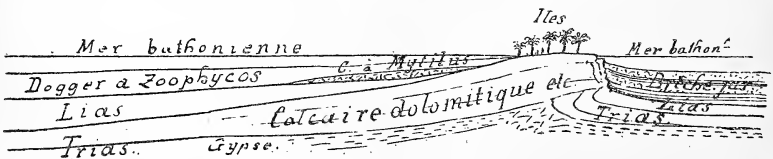 Iles
Mer bathonienne
Mer bathonᵉ
C. à Mytilus
Dogger à Zoophycos
Brèche jur.
Lias
Calcaire dolomitique etc
Lias
Trias.
Trias..
Gypse.